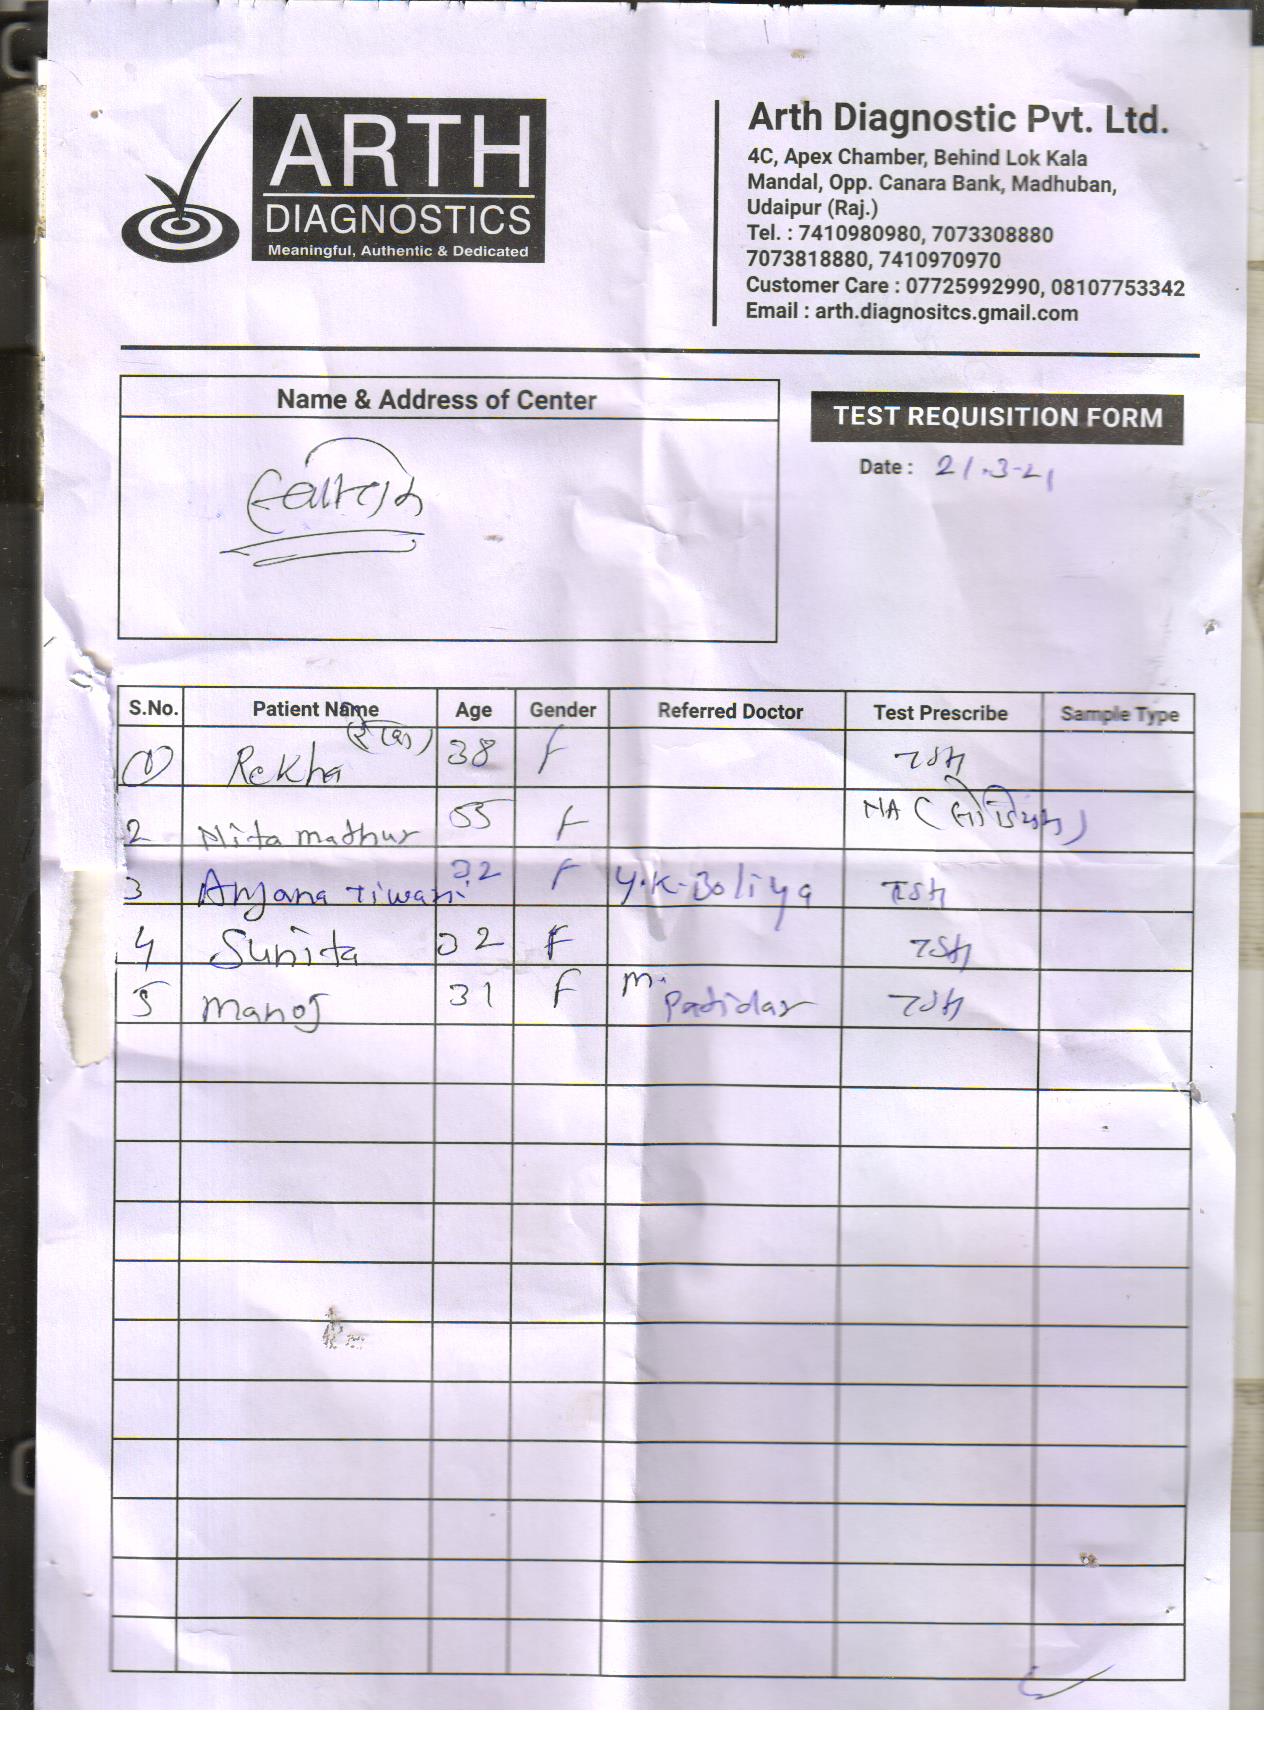 ARTH
DIAGNOSTICS
Meaningful, Authentic & Dedicated
Arth Diagnostic Pvt. Ltd.
4C, Apex Chamber, Behind Lok Kala
Mandal, Opp. Canara Bank, Madhuban,
Udaipur (Raj.)
Tel. : 7410980980, 7073308880
7073818880, 7410970970
Customer Care : 07725992990, 08107753342
Email : arth.diagnositcs.gmail.com
Name & Address of Center
TEST REQUISITION FORM
Date : 21.3-21
S.No. Patient Name Age Gender Referred Doctor Test Prescribe Sample Type
1 Rekha 38 F TSH
2 Nita mathur 55 F NA
3 Anjana Tiwari 32 F Y.K. Boliya TSH
4 Sunita 32 F TSH
5 Manoj 31 F M. Patidar TSH